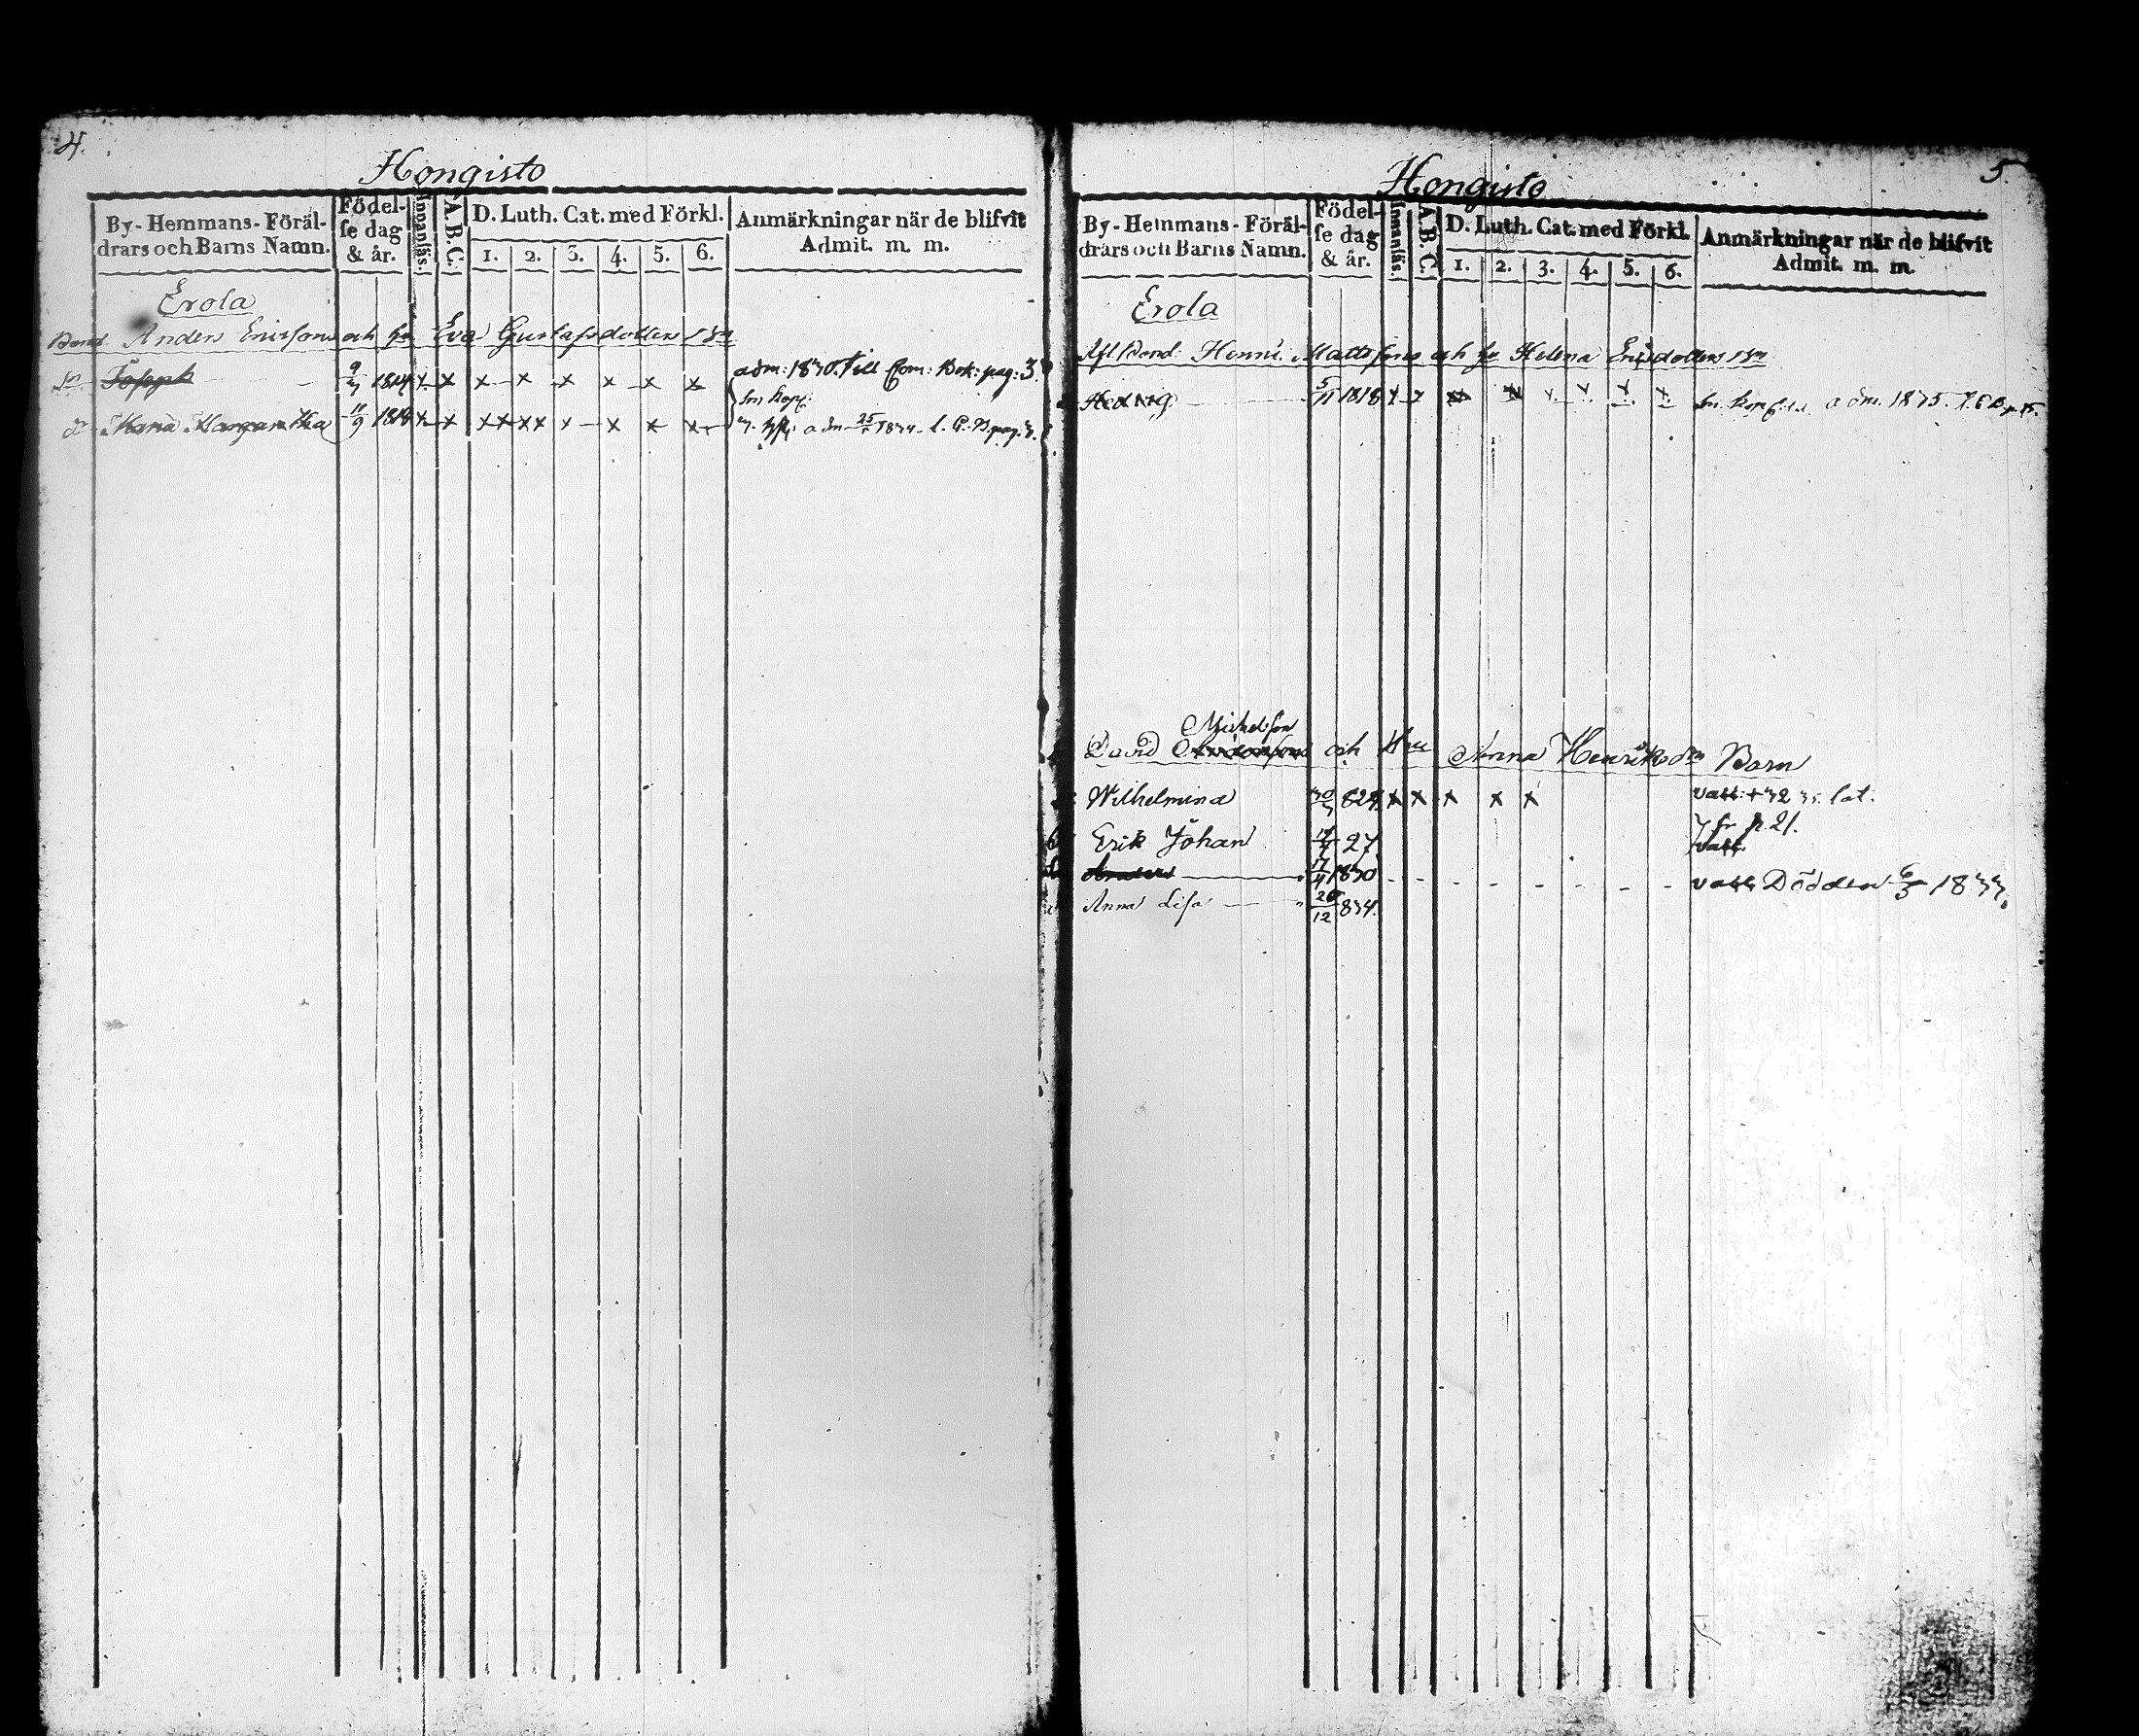 4.
Hongisto
By-Hemmans-Föräl-
drars och Barns Namn.
Födel-
se dag
& år.
Innanläs.
A.B.C.
D. Luth. Cat. med Förkl.
1. 2. 3. 4. 5. 6.
Anmärkningar när de blifvit
Admit. m. m.
Erola
Bond. Anders Ericssons och hu Eva Gustafsdotters
Joseph 1814 x x x x x x x x
adm: 1830. Till Com: Bok: pag: 3.
Sm kopp:
Maria Margaretha 11/9 1818 x x xx xx x x x x
5.
Hongisto
By-Hemmans-Föräl-
drars och Barns Namn.
Födel-
se dag
& år.
Innanläs.
A.B.C.
D. Luth. Cat. med Förkl.
1. 2. 3. 4. 5. 6.
Anmärkningar när de blifvit
Admit. m. m.
Erola
Henric Mattssons och hu Helena Ericsdotters
Hedvig 5/11 1818
adm. 1835.
Michelsson
David och Hru Anna Henriksdr Barn
Wilhelmina x x x x x
vacc:
fr p. 21.
Erik Johan 27
vacc.
Anders 1830 vacc. Döden 6/3 1833.
Anna Lisa 26/12 834.